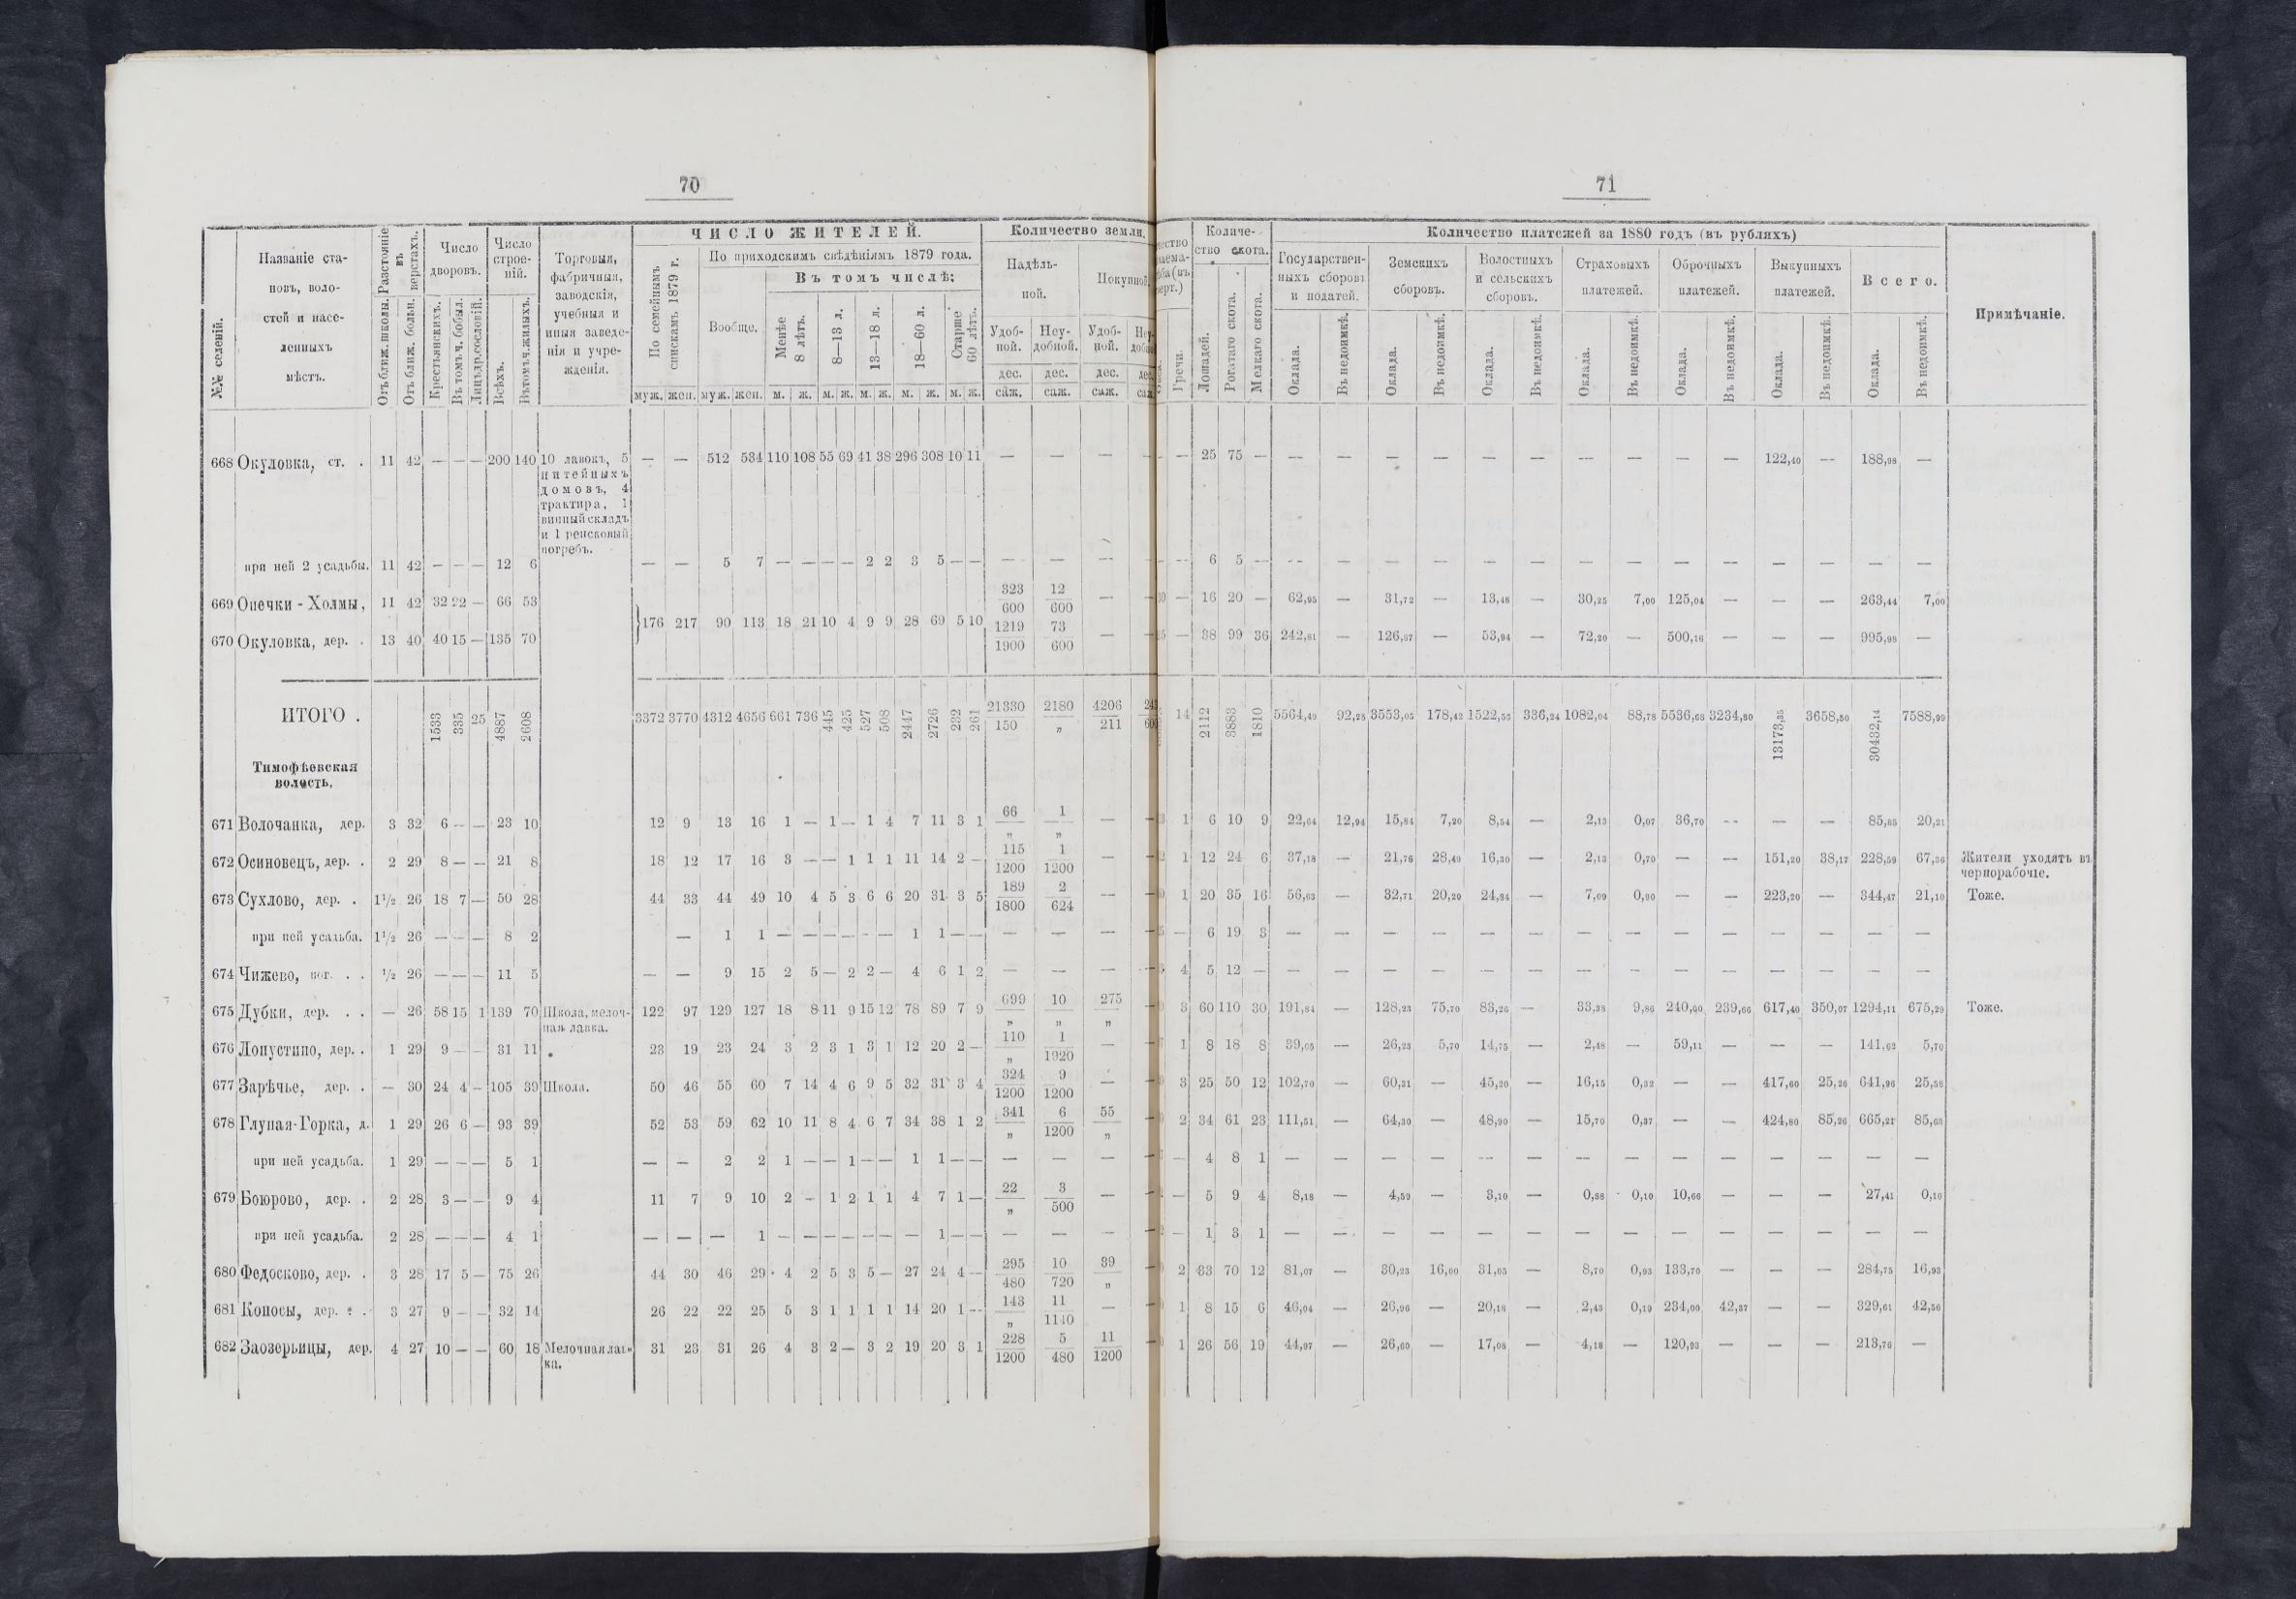 70
71
ЧИСЛО ЖИТЕЛЕЙ.
Количество земли.
Количе-
ство скота.
Количество платежей за 1880 годъ (въ рубляхъ)
№№ селеній.
Названіе ста-
новъ, воло-
стей и насе-
ленныхъ
мѣстъ.
Разстояніе
въ
верстахъ.
Отъ ближ. школы.
Отъ ближ. больн.
Число
дворовъ.
Крестьянскихъ.
Въ томъ ч. бобыл.
Лицъ др. сословій.
Число
строе-
ній.
Всѣхъ.
Въ томъ ч. жилыхъ.
Торговыя,
фабричныя,
заводскія,
учебныя и
иныя заведе-
нія и учре-
жденія.
По семейнымъ
спискамъ 1879 г.
По приходскимъ свѣдѣніямъ 1879 года.
Вообще.
Въ томъ числѣ:
Менѣе
8 лѣтъ.
8—13 л.
13—18 л.
18—60 л.
Старше
60 лѣтъ.
муж. жен. муж. жен. м. ж. м. ж. м. ж. м. ж. м. ж.
Надѣль-
ной.
Покупной.
Удоб-
ной.
Неу-
добной.
Удоб-
ной.
дес. дес. дес.
саж. саж. саж.
Гречи.
Лошадей.
Рогатаго скота.
Мелкаго скота.
Государствен-
ныхъ сборовъ
и податей.
Земскихъ
сборовъ.
Волостныхъ
и сельскихъ
сборовъ.
Страховыхъ
платежей.
Оброчныхъ
платежей.
Выкупныхъ
платежей.
Всего.
Оклада. Въ недоимкѣ. Оклада. Въ недоимкѣ. Оклада. Въ недоимкѣ. Оклада. Въ недоимкѣ. Оклада. Въ недоимкѣ. Оклада. Въ недоимкѣ. Оклада. Въ недоимкѣ.
Примѣчаніе.
668 Окуловка, ст. . 11 42 — — — 200 140 10 лавокъ, 5 — — 512 534 110 108 55 69 41 38 296 308 10 11 — — — — — 25 75 — — — — — — — — — — — 122,40 — 188,98 —
питейныхъ
домовъ, 4
трактира, 1
винный складъ
и 1 ренсковый
погребъ.
при ней 2 усадьбы. 11 42 — — — 12 6 — — 5 7 — — — — 2 2 3 5 — — — — — — — 6 5 — — — — — — — — — — — — — — —
669 Опечки-Холмы, 11 42 32 22 — 66 53 323/600 12/600 — — — 16 20 — 62,95 — 31,72 — 13,48 — 30,25 7,00 125,04 — — — 263,44 7,00
} 176 217 90 113 18 21 10 4 9 9 28 69 5 10
670 Окуловка, дер. . 13 40 40 15 — 135 70 1219/1900 73/600 — — — 38 99 36 242,81 — 126,87 — 53,94 — 72,20 — 500,16 — — — 995,98 —
ИТОГО . 1533 335 25 4887 2608 3372 3770 4312 4656 661 736 445 425 527 508 2447 2726 232 261 21330/150 2180/„ 4206/211 14 2112 3883 1810 5564,49 92,28 3553,05 178,42 1522,55 336,24 1082,04 88,78 5536,68 3234,80 13173,35 3658,50 30432,14 7588,99
Тимофѣевская
волость.
671 Волочанка, дер. 3 32 6 — — 23 10 12 9 13 16 1 — 1 — 1 4 7 11 3 1 66/„ 1/„ — — 1 6 10 9 22,64 12,94 15,84 7,20 8,54 — 2,13 0,07 36,70 — — — 85,85 20,21
672 Осиновецъ, дер. . 2 29 8 — — 21 8 18 12 17 16 3 — — 1 1 1 11 14 2 — 115/1200 1/1200 — — 1 12 24 6 37,18 — 21,76 28,49 16,30 — 2,13 0,70 — — 151,20 38,17 228,59 67,36 Жители уходятъ въ
чернорабочіе.
673 Сухлово, дер. . 1½ 26 18 7 — 50 28 44 33 44 49 10 4 5 3 6 6 20 31 3 5 189/1800 2/624 — — 1 20 35 16 56,63 — 32,71 20,20 24,84 — 7,09 0,90 — — 223,20 — 344,47 21,10 Тоже.
при ней усадьба. 1½ 26 — — — 8 2 — 1 1 — — — — — — 1 1 — — — — — — — 6 19 3 — — — — — — — — — — — — — —
674 Чижево, пог. . . ½ 26 — — — 11 5 — — 9 15 2 5 — 2 2 — 4 6 1 2 — — — — 4 5 12 — — — — — — — — — — — — — — —
675 Дубки, дер. . . — 26 58 15 1 139 70 Школа, мелоч- 122 97 129 127 18 8 11 9 15 12 78 89 7 9 699/„ 10/„ 275/„ — 3 60 110 30 191,84 — 128,23 75,70 83,26 — 33,38 9,86 240,00 239,66 617,40 350,07 1294,11 675,29 Тоже.
ная лавка.
676 Лопустино, дер. . 1 29 9 — — 31 11 23 19 23 24 3 2 3 1 3 1 12 20 2 — 110/„ 1/1920 — — 1 8 18 8 39,05 — 26,23 5,70 14,75 — 2,48 — 59,11 — — — 141,62 5,70
677 Зарѣчье, дер. . — 30 24 4 — 105 39 Школа. 50 46 55 60 7 14 4 6 9 5 32 31 3 4 324/1200 9/1200 — — 3 25 50 12 102,70 — 60,31 — 45,20 — 16,15 0,32 — — 417,60 25,26 641,96 25,58
678 Глупая-Горка, д. 1 29 26 6 — 93 39 52 53 59 62 10 11 8 4 6 7 34 38 1 2 341/„ 6/1200 55/„ — 2 34 61 23 111,51 — 64,30 — 48,90 — 15,70 0,37 — — 424,80 85,26 665,21 85,63
при ней усадьба. 1 29 — — — 5 1 — — 2 2 1 — — 1 — — 1 1 — — — — — — — 4 8 1 — — — — — — — — — — — — — —
679 Боюрово, дер. . 2 28 3 — — 9 4 11 7 9 10 2 — 1 2 1 1 4 7 1 — 22/„ 3/500 — — — 5 9 4 8,18 — 4,59 — 3,10 — 0,88 0,10 10,66 — — — 27,41 0,10
при ней усадьба. 2 28 — — — 4 1 — — — 1 — — — — — — — 1 — — — — — — — 1 3 1 — — — — — — — — — — — — — —
680 Федосково, дер. . 3 28 17 5 — 75 26 44 30 46 29 4 2 5 3 5 — 27 24 4 — 295/480 10/720 39/„ — 2 33 70 12 81,07 — 30,23 16,00 31,05 — 8,70 0,93 133,70 — — — 284,75 16,93
681 Копосы, дер. . . 3 27 9 — — 32 14 26 22 22 25 5 3 1 1 1 1 14 20 1 — 143/„ 11/1140 — — 1 8 15 6 46,04 — 26,96 — 20,18 — 2,43 0,19 234,00 42,37 — — 329,61 42,56
682 Заозерьицы, дер. 4 27 10 — — 60 18 Мелочная лав- 31 23 31 26 4 3 2 — 3 2 19 20 3 1 228/1200 5/480 11/1200 — 1 26 56 19 44,97 — 26,60 — 17,08 — 4,18 — 120,93 — — — 213,76 —
ка.